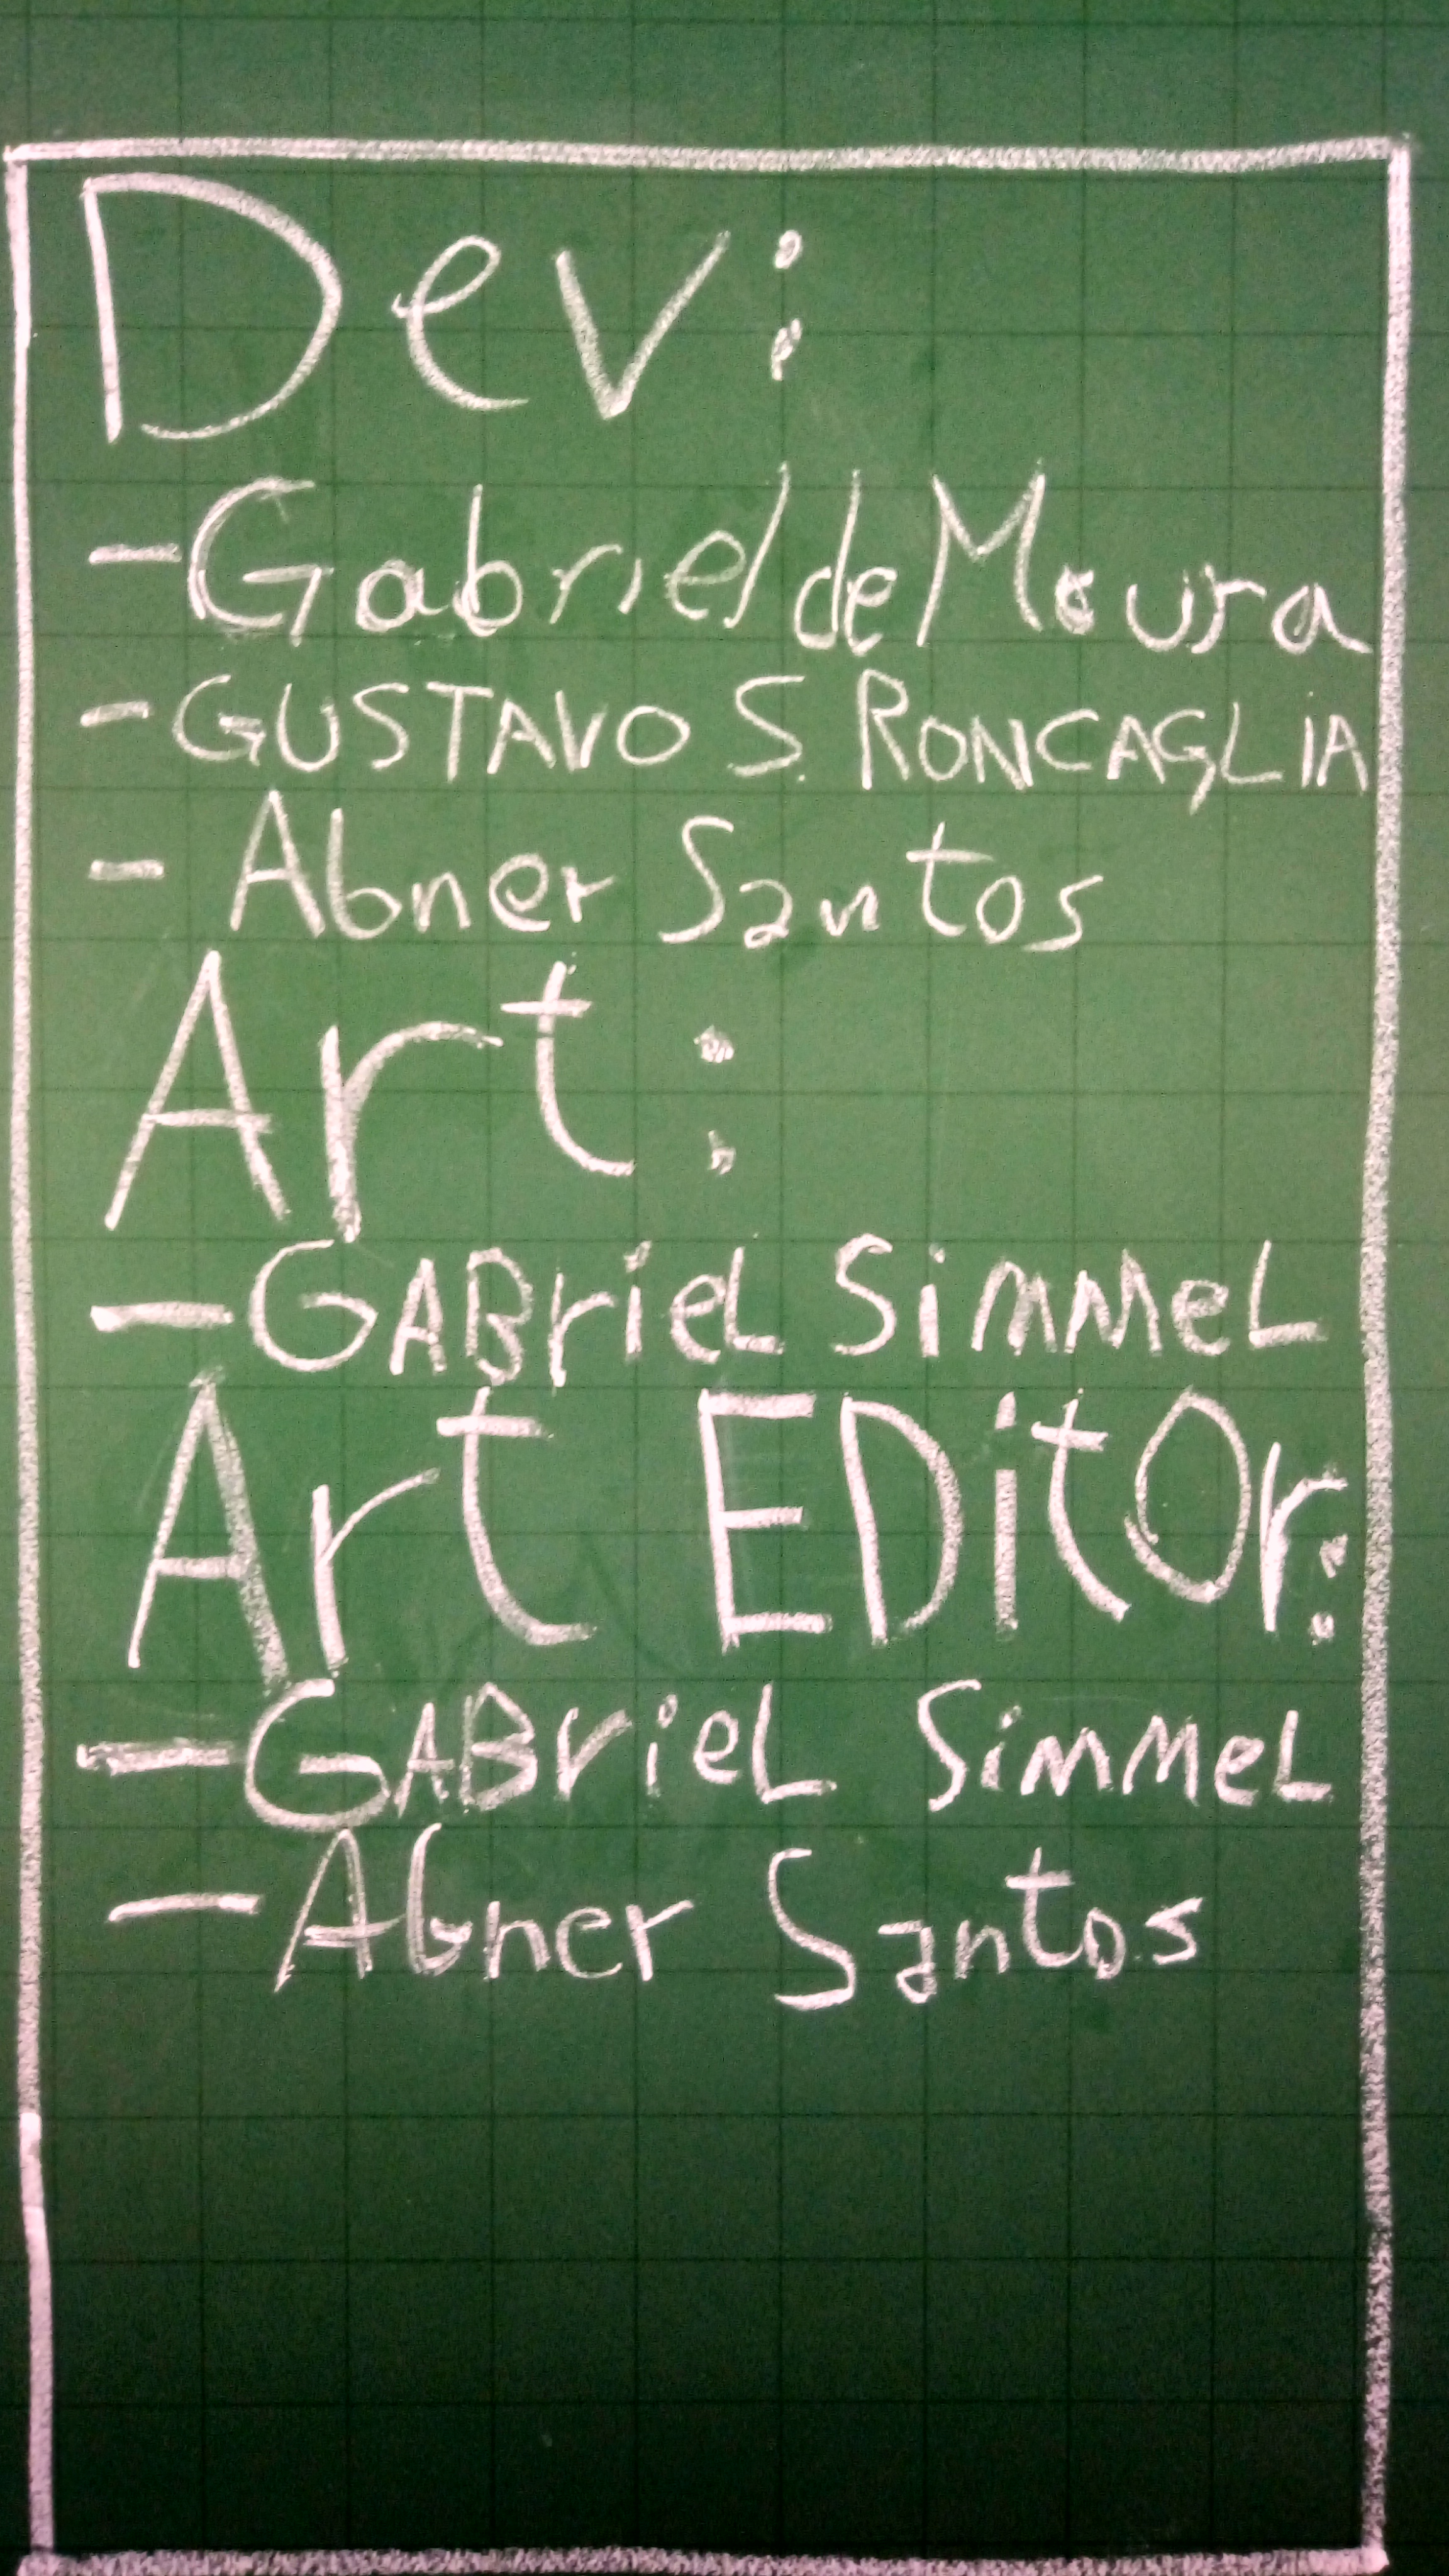 Dev:
- Gabriel de Moura
- GUSTAVO S. RONCAGLiA
- Abner Santos
Art:
- GABriel SiMMeL
Art EDitOr:
- GABrieL SiMMeL
- Abner Santos